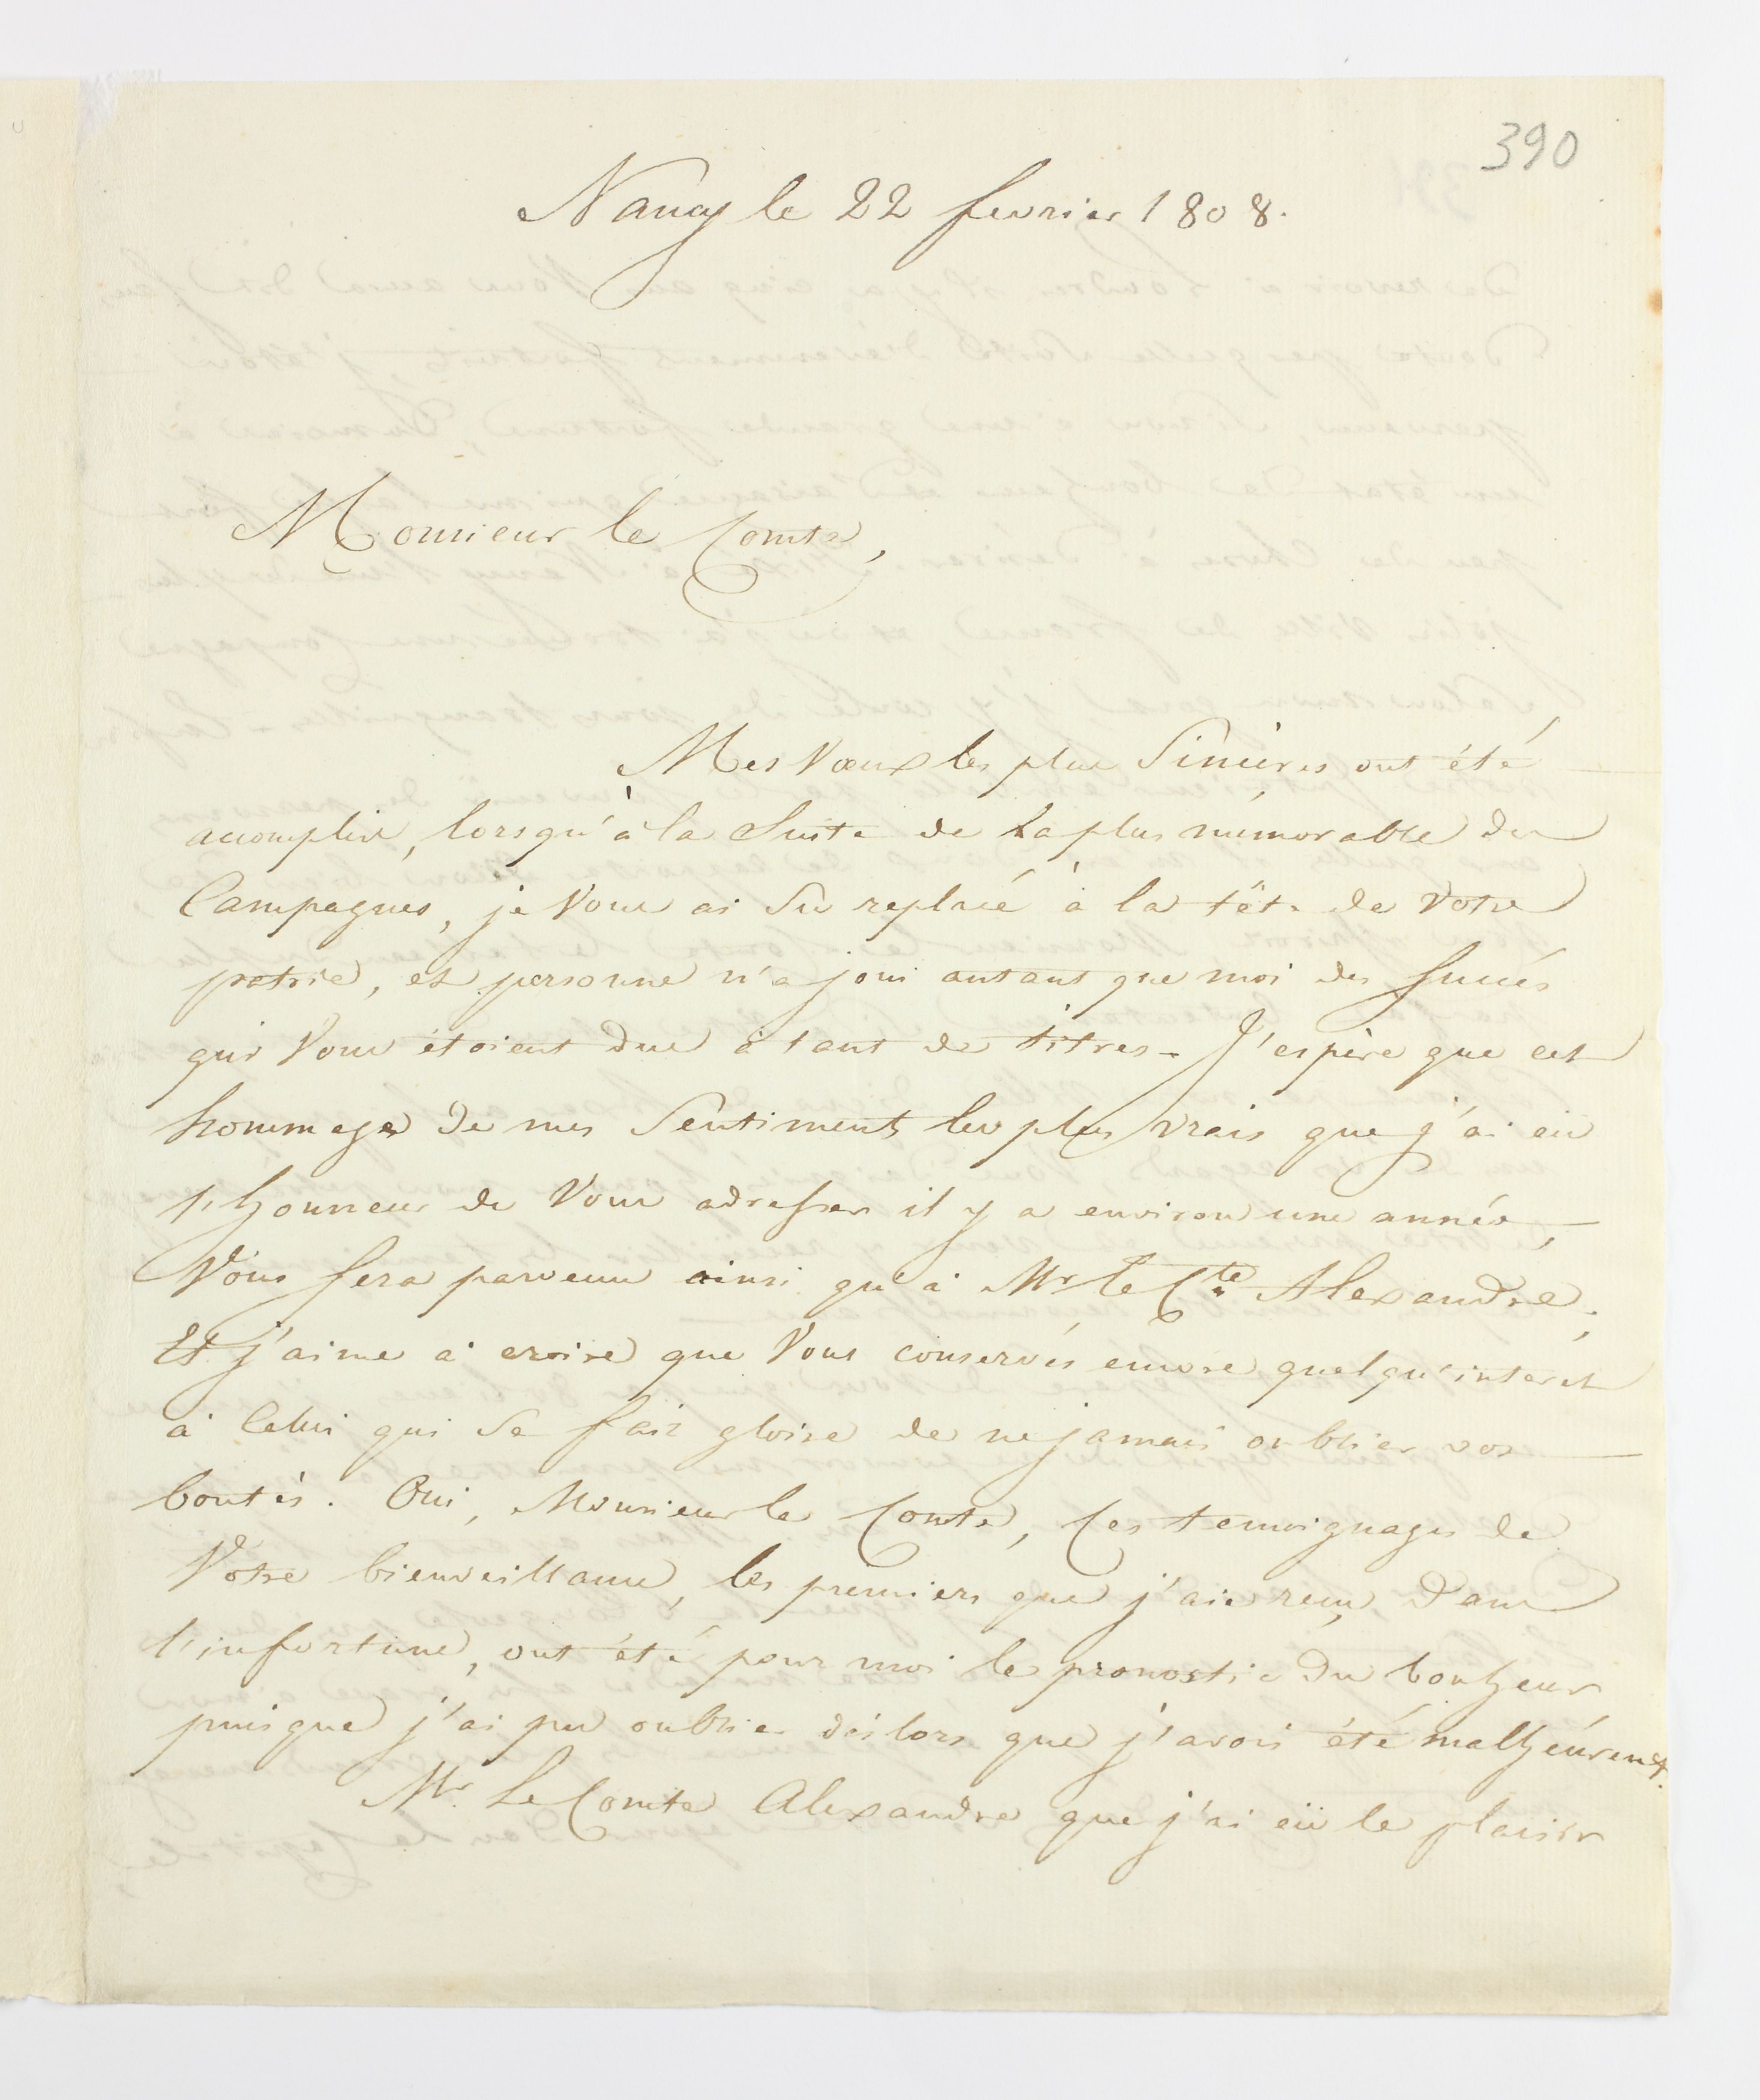 390
Nancy le 22 fevrier 1808.
Monsieur le Comte,
Mes Vœux les plus Sincères ont été
accomplis, lorsqu'à la Suite de la plus mémorable des
Campagnes, je Vous ai Sû replacé à la tête de Votre
patrie, et personne n'a joui autant que moi des Succés
qui Vous étoient dus à tant de titres. J'espère que cet
hommage de mes Sentiments les plus vrais que j'ai eû
l'honneur de Vous adresser il y a environ une année,
Vous Sera parvenu ainsi qu'à Mr le Cte Alexandre;
Et j'aime à croire que Vous conservés encore quelqu'interet
à Celui qui Se fait gloire de ne jamais oublier vos
bontés. Oui, Monsieur le Comte, Ces temoignages de
Votre bienveillance, les premiers que j'aie reçu dans
l'infortune, ont été pour moi le pronostic du bonheur
puisque j'ai pu oublier dès lors que j'avois été malheureux.
Mr. Le Comte Alexandre que j'ai eû le plaisir